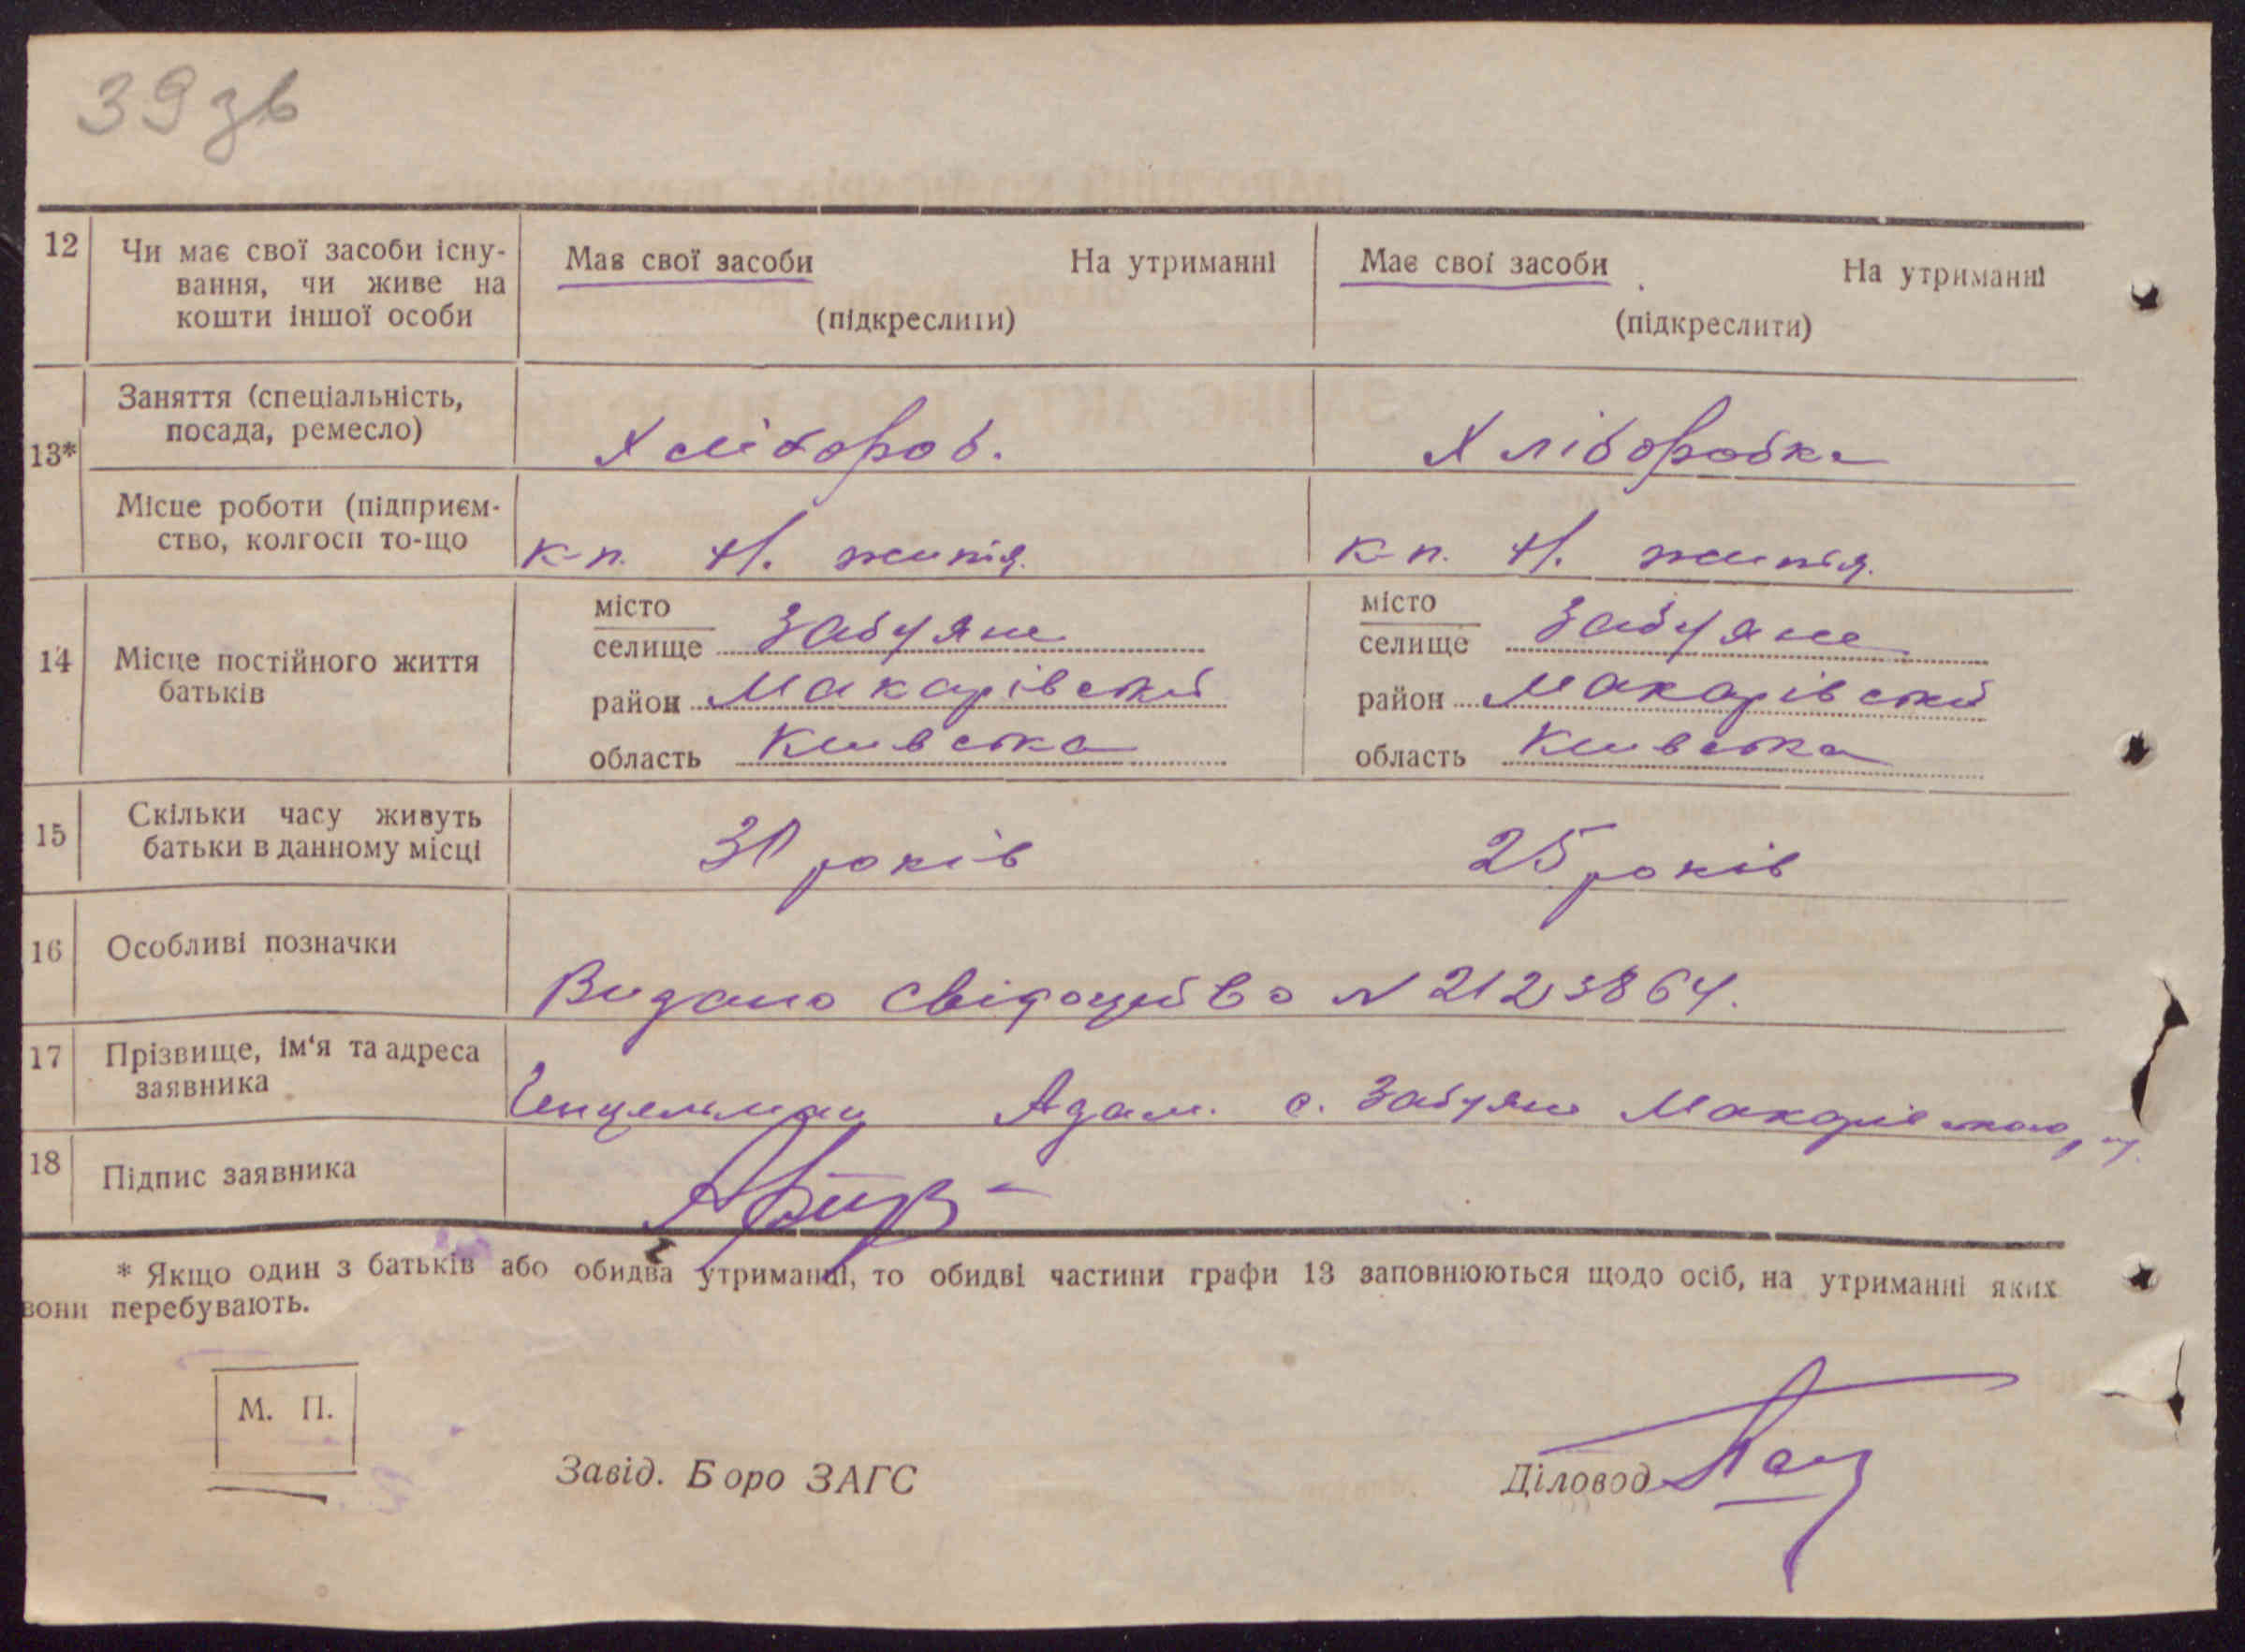 39 зв
12 Чи має свої засоби існу- Має свої засоби На утриманні Має свої засоби На утриманні
вання, чи живе на
кошти іншої особи (підкреслити) (підкреслити)
Заняття (спеціальність,
посада, ремесло) Хлібороб. Хліборобка
13*
Місце роботи (підприєм-
ство, колгосп то-що к-п. Н. життя. к-п. Н. життя.
місто місто
селище Забуяне селище Забуяне
14 Місце постійного життя
батьків район Макарівский район Макарівский
область Київська область Київська
15 Скільки часу живуть
батьки в данному місці 30 років 25 років
16 Особливі позначки
Видано свідоцтво N 2123864.
17 Прізвище, ім'я та адреса
заявника Адам. с. Забуяне Макарівського
18 Підпис заявника
* Якщо один з батьків або обидва утриманці, то обидві частини графи 13 заповнюються щодо осіб, на утриманні яких
вони перебувають.
М. П.
Завід. Бюро ЗАГС Діловод